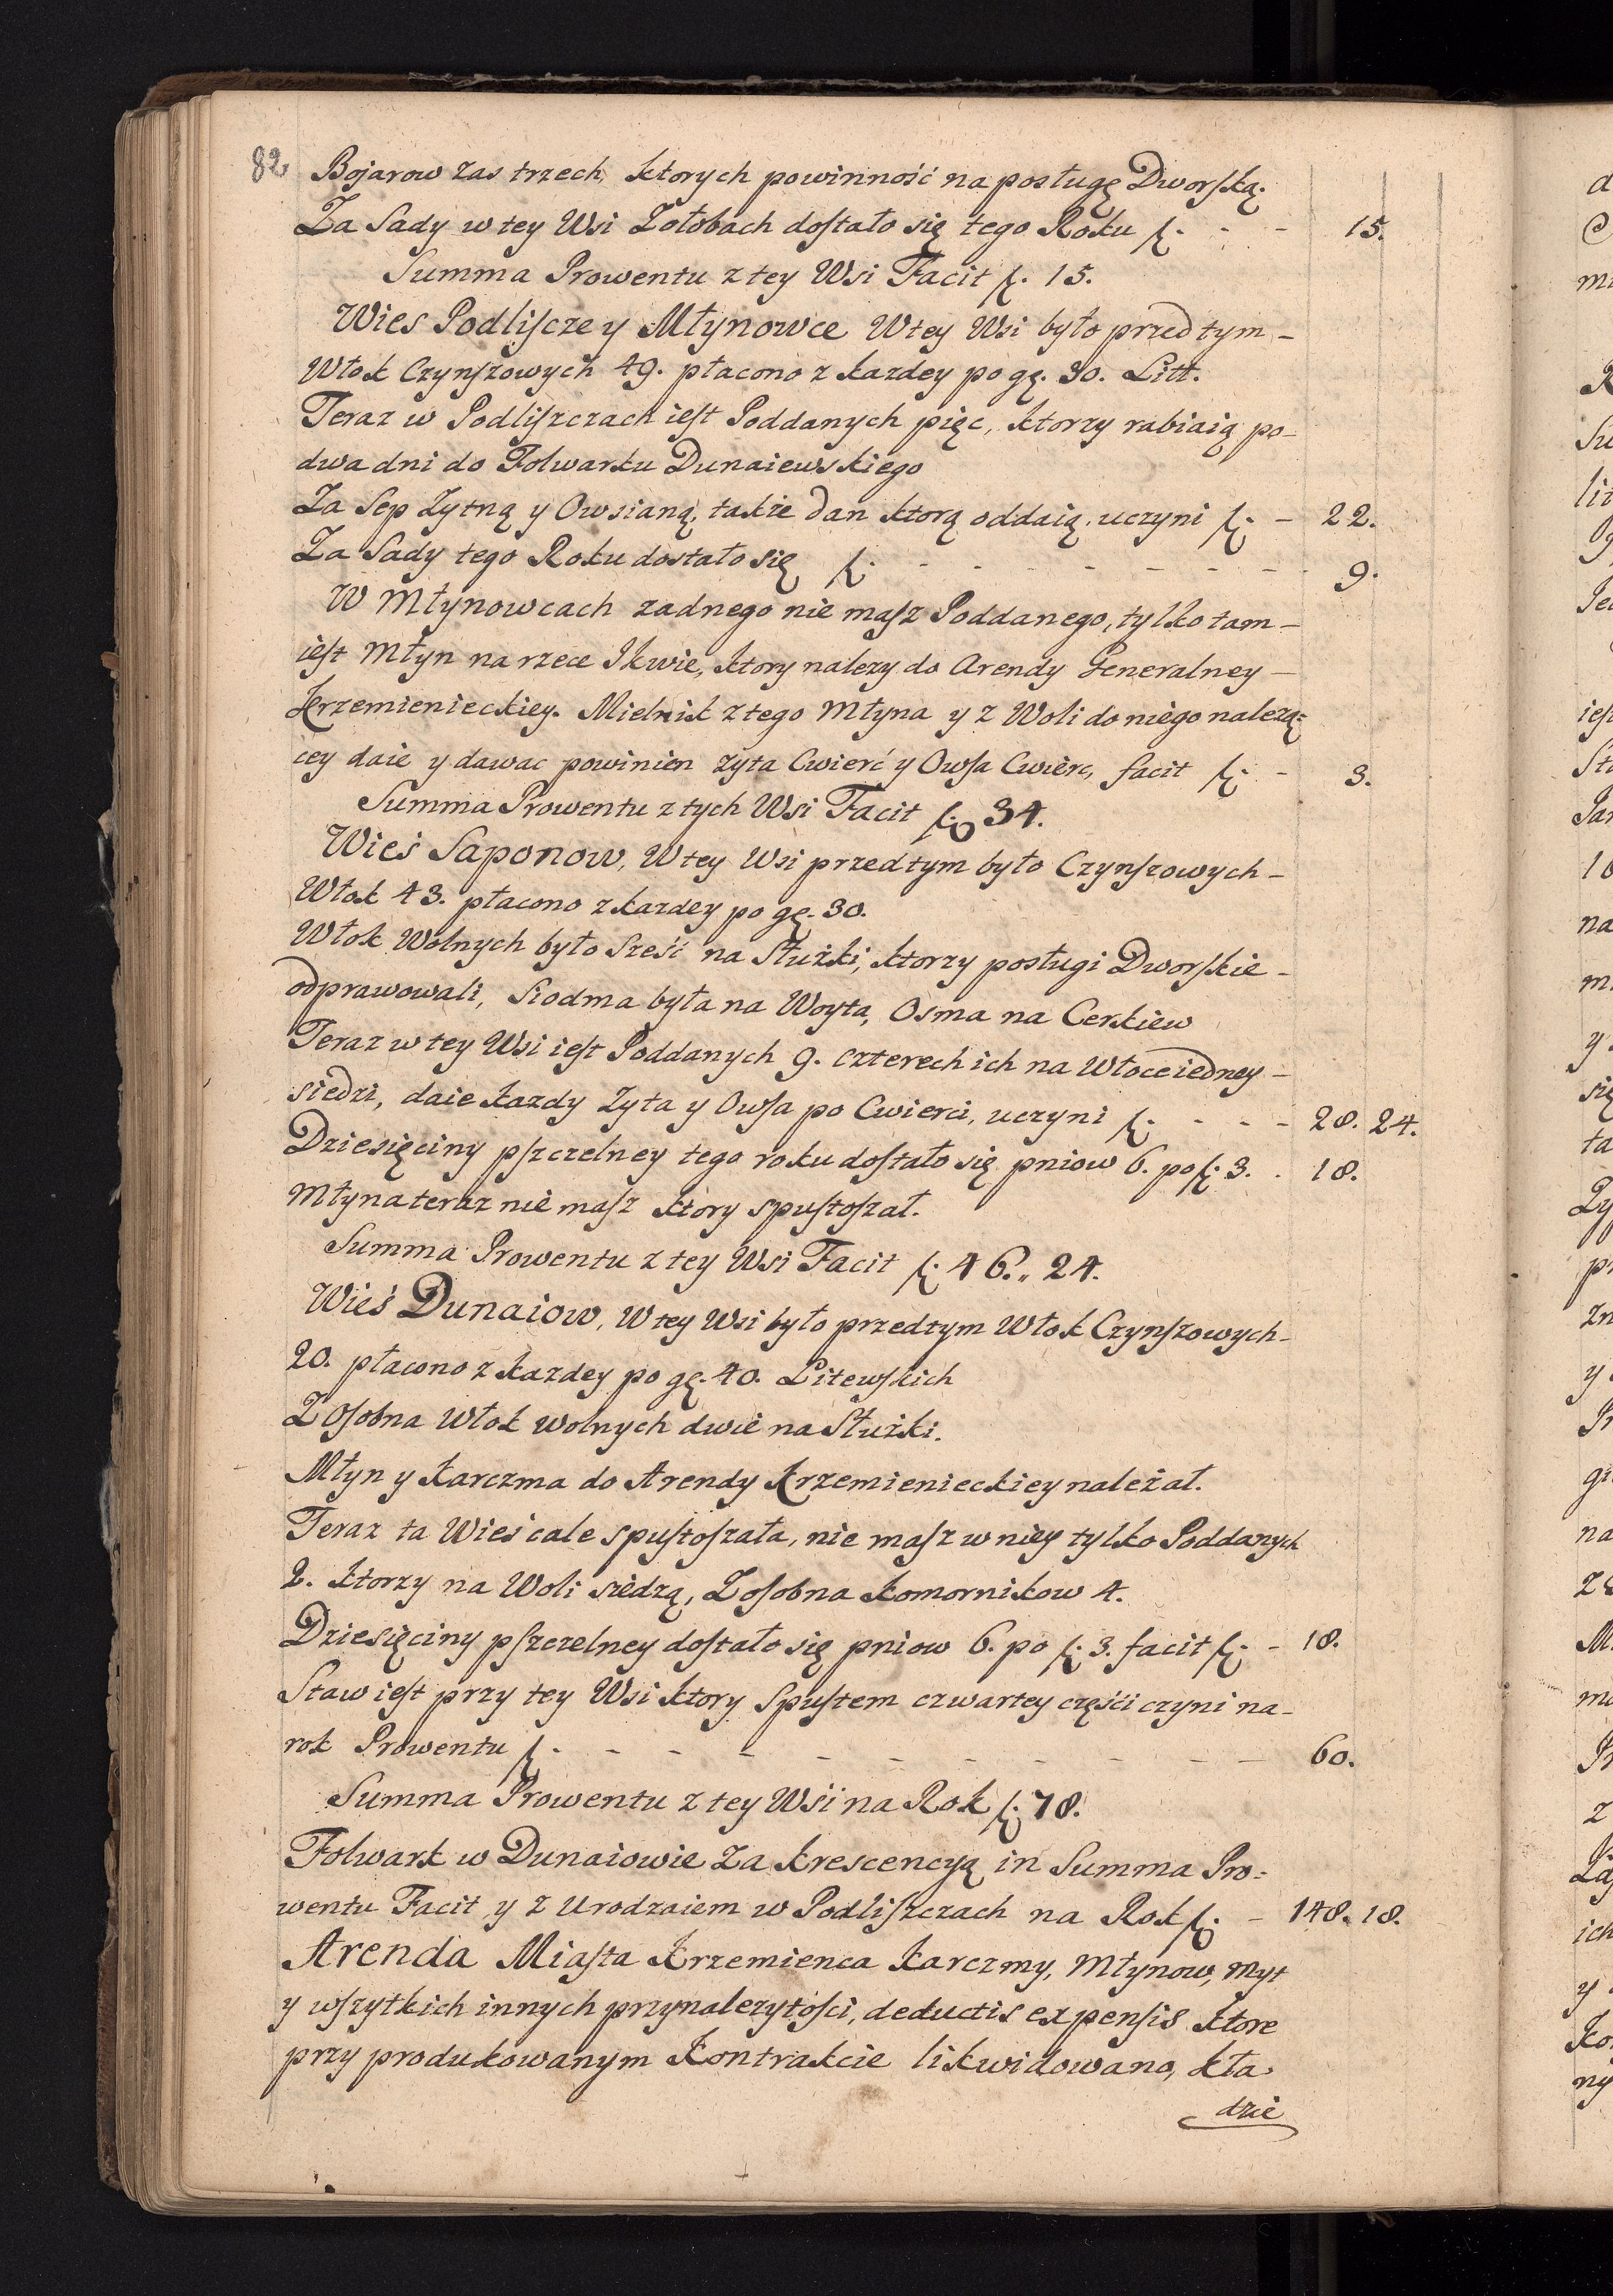 82
Bojarow zas trzech, ktorych powinność na posługę Dworſką.
Za Sady w tey Wsi Zołobach doſtało się tego Roku f. - - 15.
Summa Prowentu z tey Wsi Facit f. 15.
Wies Podliſcze y Młynowce W tey Wsi było przed tym -
Włok Czynſzowych 49. płacono z kazdey po gę. 30. Litt.
Teraz w Podliſzczach ieſt Poddanych pięc, ktorzy rabiaią po-
dwa dni do Folwarku Dunaiewskiego
Za Sep Zytną y Owsianą, także dan ktorą oddaią, uczyni f. - 22.
Za Sady tego Roku dostało się f. - - - - - - - 9.
W Młynowcach zadnego nie maſz Poddanego, tylko tam -
ieſt Młyn na rzece Ikwie, ktory nalezy do Arendy Generalney -
Krzemienieckiey. Mielnik z tego Młyna y z Woli do niego nalezą=
cey daie y dawac powinien zyta Cwierć y Owſa Cwierc, facit f. - 3.
Summa Prowentu z tych Wsi Facit f. 34.
Wieś Saponow, W tey Wsi przedtym było Czynſzowych -
Włok 43. płacono z kazdey po gę. 30.
Włok Wolnych było Sześć na Służki, ktorzy posługi Dworſkie -
odprawowali, Siodma była na Woyta, Osma na Cerkiew
Teraz w tey Wsi ieſt Poddanych 9. czterech ich na Włoce iedney -
siedzi, daie kazdy Zyta y Owſa po Cwierci, uczyni f. - - - 28. 24.
Dziesięciny pſzczelney tego roku doſtało się pniow 6. po f. 3. . 18.
Młyna teraz nie maſz ktory spuſtoſzał.
Summa Prowentu z tey Wsi Facit f. 46.,, 24.
Wieś Dunaiow, W tey Wsi było przedtym Włok Czynſzowych -
20. płacono z kazdey po gę. 40. Litewſkich
Z Oſobna Włok wolnych dwie na Służki.
Młyn y Karczma do Arendy Krzemienieckiey należał.
Teraz ta Wieś cale spuſtoſzała, nie maſz w niey tylko Poddanych
2. ktorzy na Woli siedzą, Z oſobna Komornikow 4.
Dziesięciny pſzczelney doſtało się pniow 6. po f. 3. facit f. - 18.
Staw ieſt przy tey Wsi ktory Spuſtem czwartey części czyni na -
rok Prowentu f. - - - - - - - - - - 60.
Summa Prowentu z tey Wśi na Rok f. 78.
Folwark w Dunaiowie Za krescencyą in Summa Pro=
wentu Facit y z Urodzaiem w Podliſzczach na Rok f. - 148. 18.
Arenda Miaſta Krzemienca Karczmy, Młynow, Myt
y wſzytkich innych przynalezytości, deductis expenſis ktore
przy produkowanym Kontrakcie likwidowano, kła
dzie